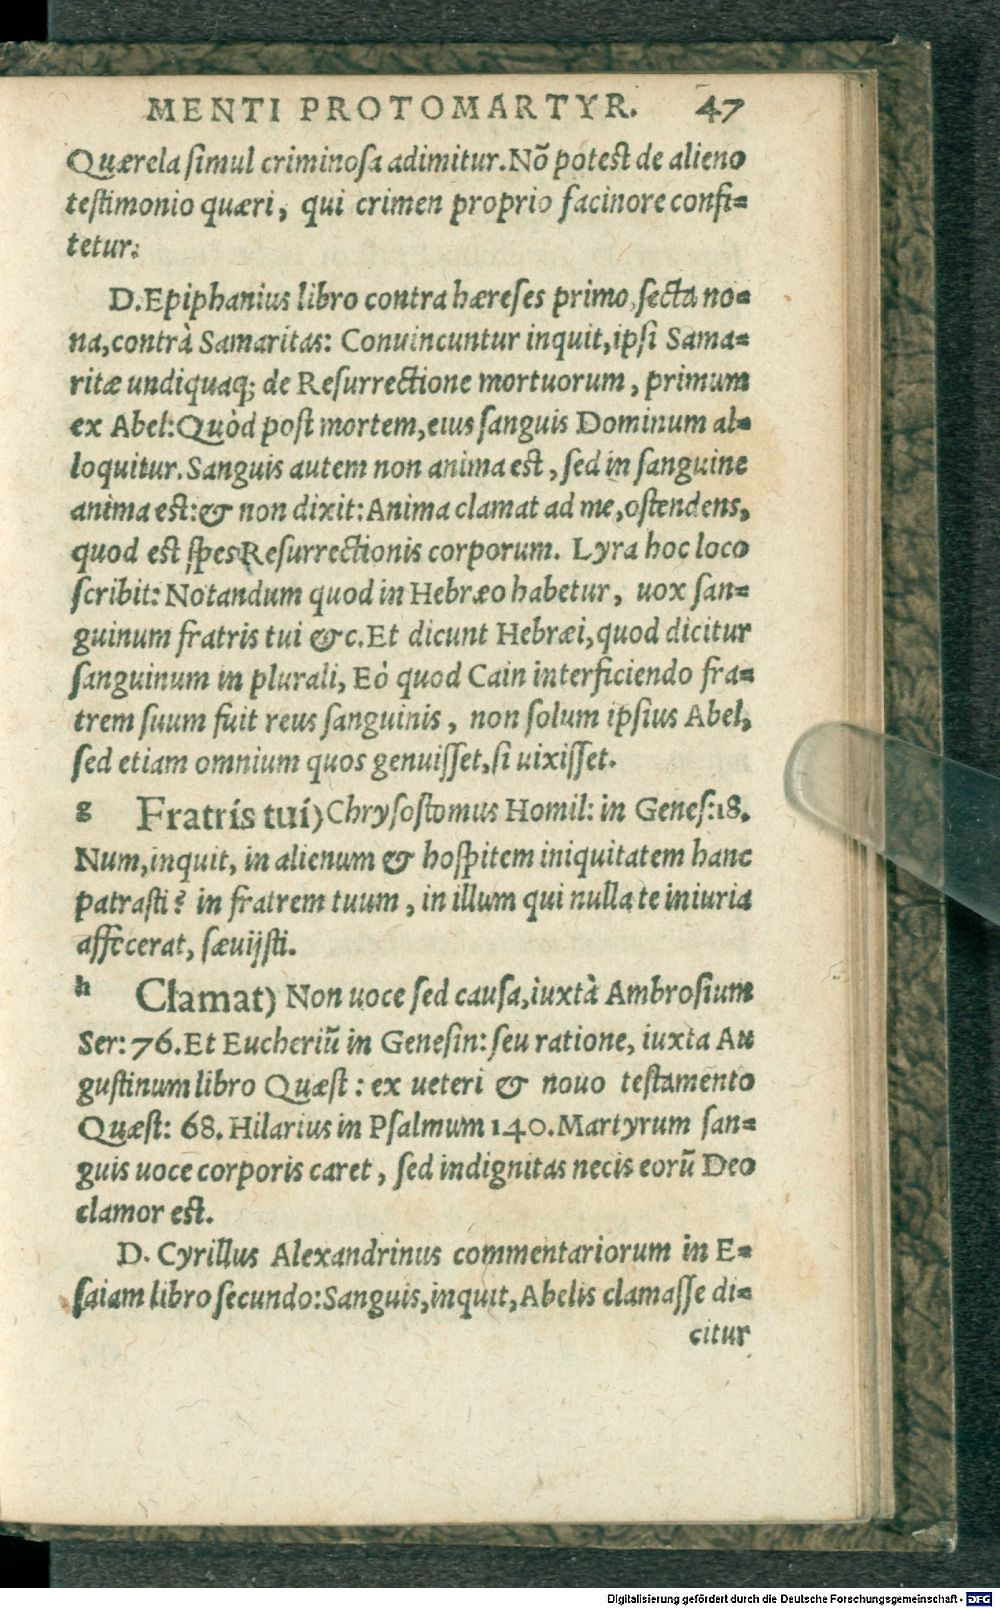 MENTI PROTOMARTYR. 47
Quærela simul criminosa adimitur. Nõ potest de alieno
testimonio quæri, qui crimen proprio facinore confi=
tetur:
D. Epiphanius libro contra hæreses primo, secta no=
na, contrà Samaritas: Conuincuntur inquit, ipsi Sama=
ritæ undiquaq; de Resurrectione mortuorum, primum
ex Abel: Quòd post mortem, eius sanguis Dominum al=
loquitur. Sanguis autem non anima est, sed in sanguine
anima est: & non dixit: Anima clamat ad me, ostendens,
quod est spes Resurrectionis corporum. Lyra hoc loco
scribit: Notandum quod in Hebræo habetur, uox san=
guinum fratris tui &c. Et dicunt Hebræi, quod dicitur
sanguinum in plurali, Eò quod Cain interficiendo fra=
trem suum fuit reus sanguinis, non solum ipsius Abel,
sed etiam omnium quos genuisset, si uixisset.
g Fratris tui) Chrysostomus Homil: in Genes: 18.
Num, inquit, in alienum & hospitem iniquitatem hanc
patrasti? in fratrem tuum, in illum qui nulla te iniuria
affecerat, sæuijsti.
h Clamat) Non uoce sed causa, iuxtà Ambrosium
Ser: 76. Et Eucheriũ in Genesin: seu ratione, iuxta Au
gustinum libro Quæst: ex ueteri & nouo testamento
Quæst: 68. Hilarius in Psalmum 140. Martyrum san=
guis uoce corporis caret, sed indignitas necis eorũ Deo
clamor est.
D. Cyrillus Alexandrinus commentariorum in E=
saiam libro secundo: Sanguis, inquit, Abelis clamasse di=
citur
Digitalisierung gefördert durch die Deutsche Forschungsgemeinschaft - DFG